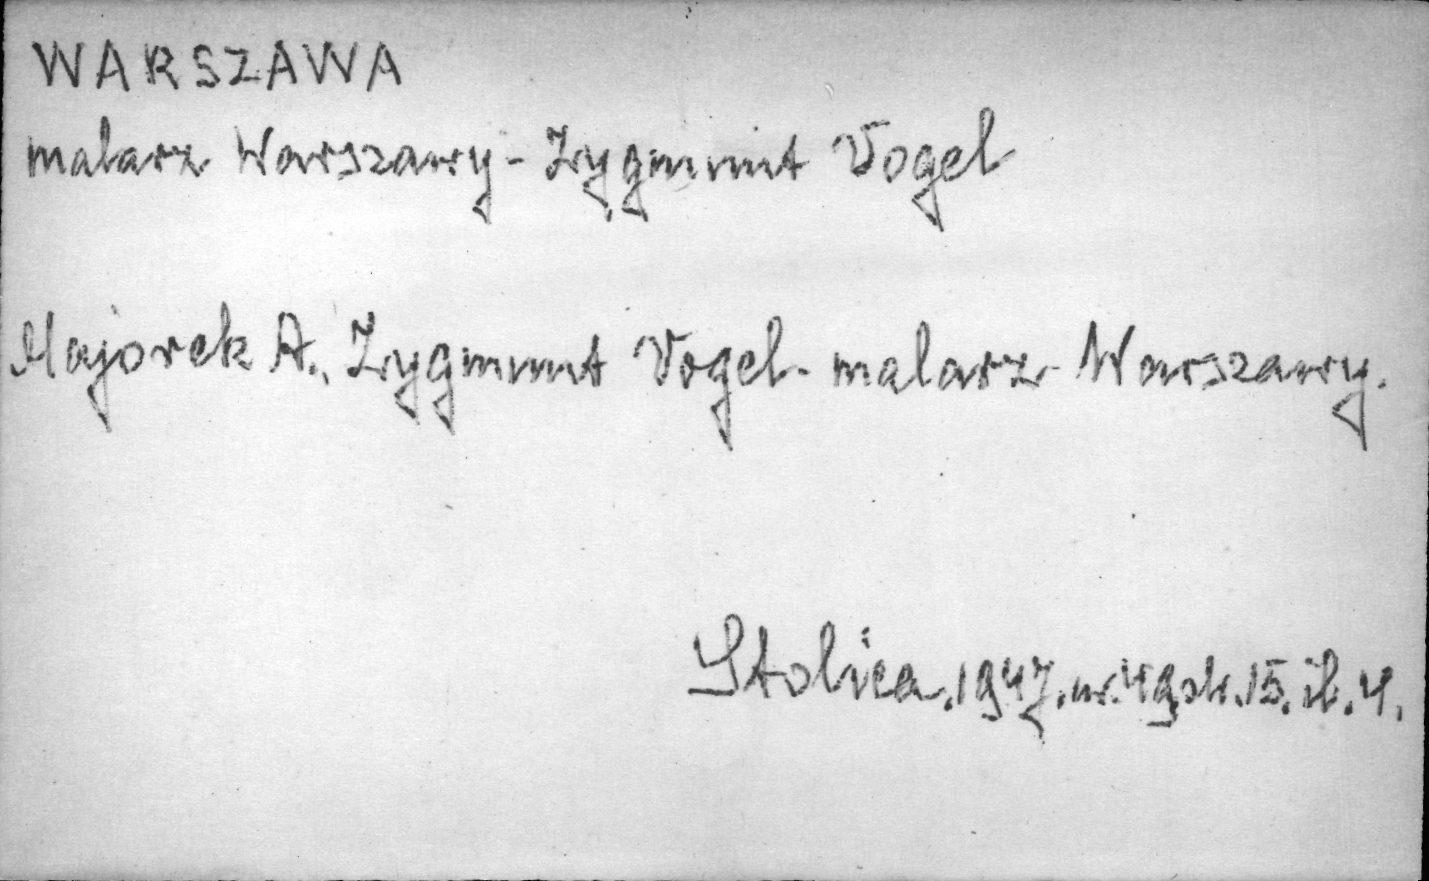 WARSZAWA
malarz Warszawy - Zygmunt Vogel
Majorek A., Zygmunt Vogel - malarz Warszawy.
Stolica. 1947. nr. 49, str. 15. il. 4.